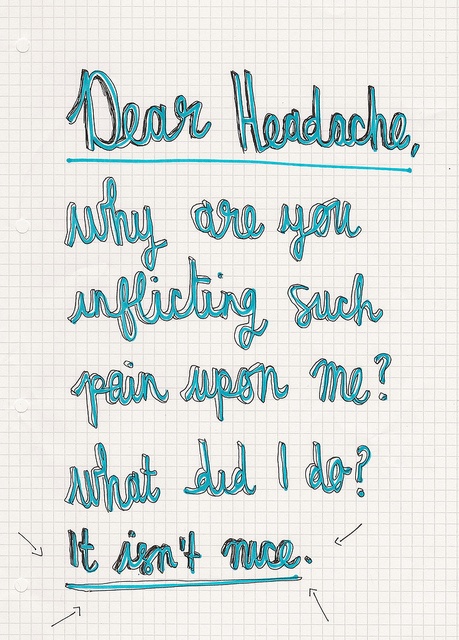 Dear Headache,
why are you
inflicting such
pain upon me?
what did I do?
It isn't nice.